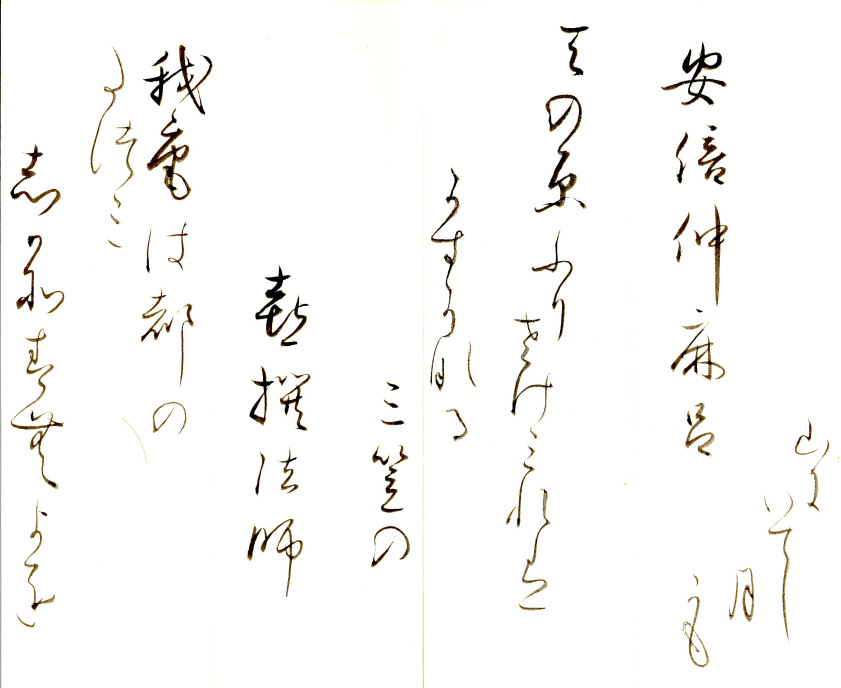 安倍仲麻呂
天の原ふり
さけみれは
かすかなる
三笠の
山に
いてし
月
かも
喜撰法師
我庵は都の
たつみ
志可所春無よを